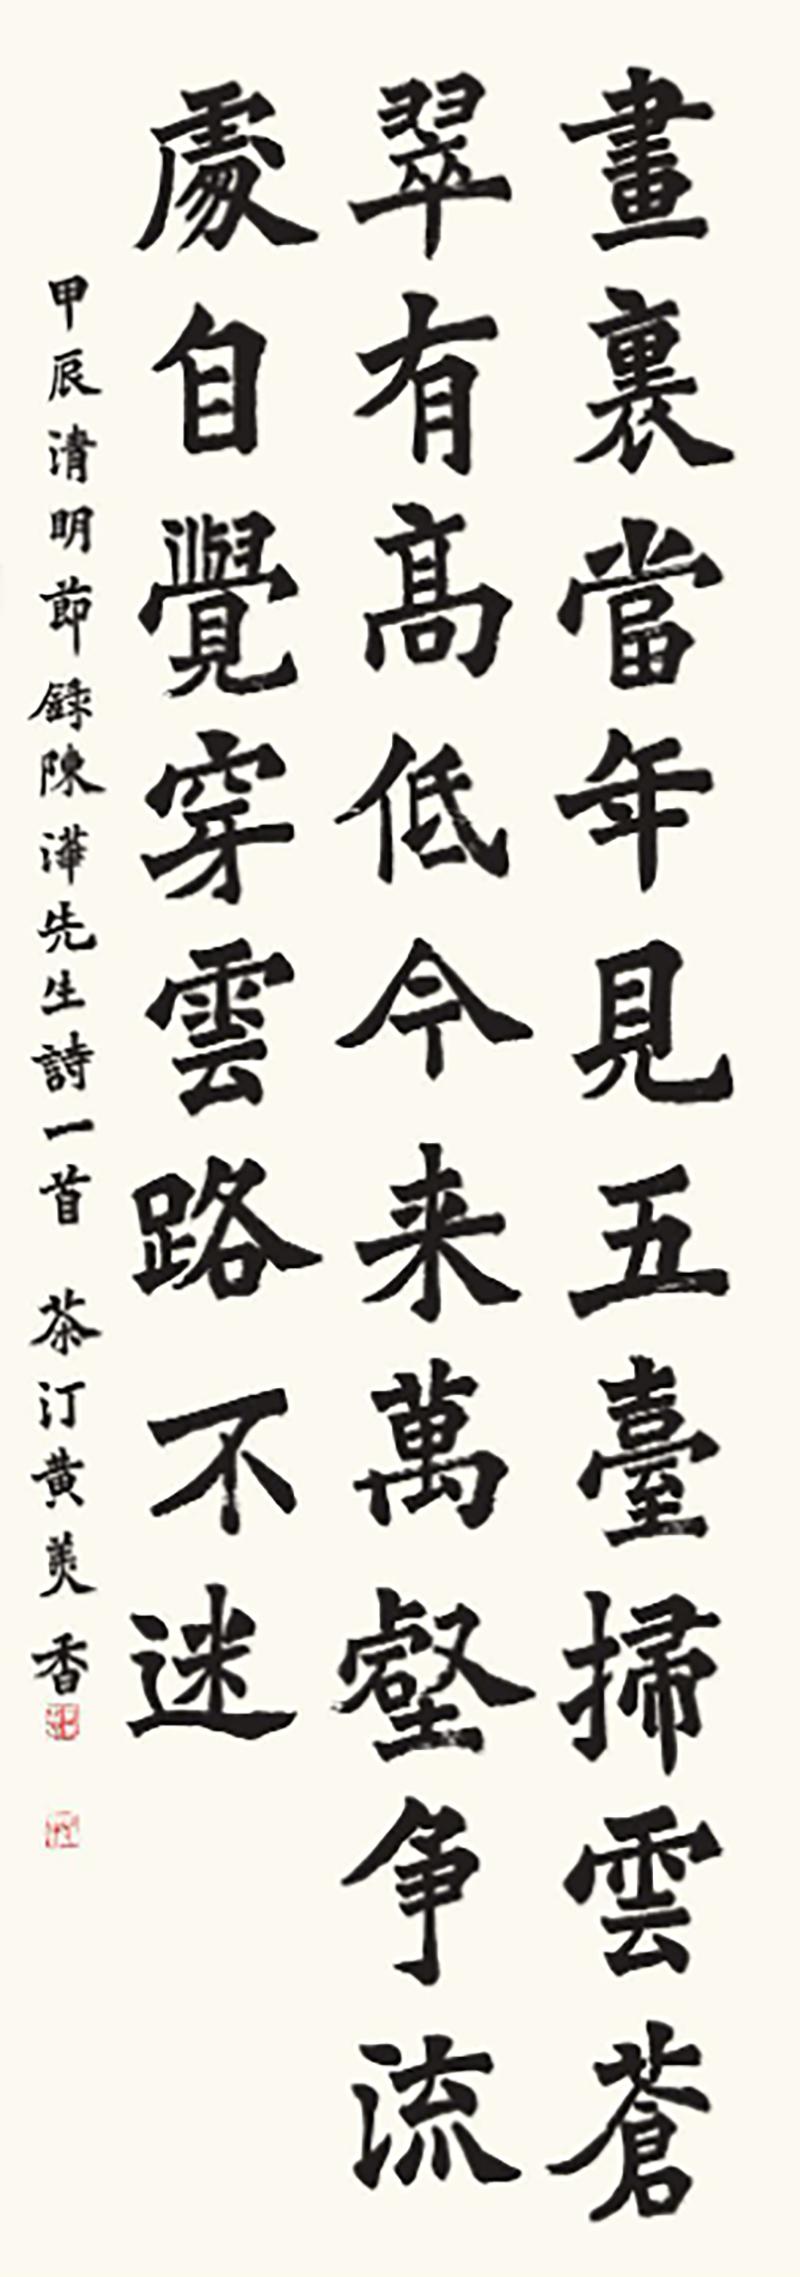 畫裏當年見五臺掃雲蒼
翠有高低今来萬壑争流
處自覺穿雲路不迷
甲辰清明節錄陳澕先生詩一首 茶汀黄美香